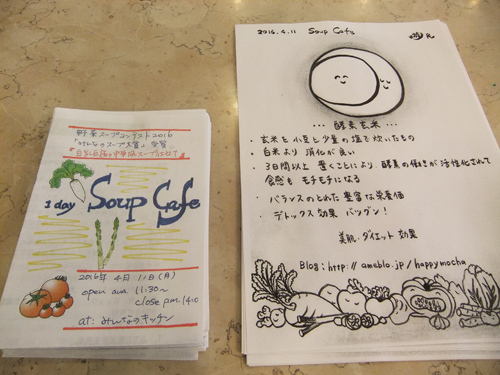 野菜スープコンテスト2016
「みんなのスープ大賞」受賞
1 day Soup Cafe
2016年 4月 11日(月)
open am. 11:30~
close pm. 14:0
at: みんなのキッチン
2016.4.11 Soup Cafe
... 酵素玄米 ...
・玄米を小豆と少量の塩で炊いたもの
・白米より 消化が良い
・3日間以上 置くことにより 酵素の働きが活性化されて
食感も モチモチになる
・バランスのとれた豊富な栄養価
・デトックス効果 バツグン!
美肌・ダイエット効果
Blog: http://ameblo.jp/happymocha